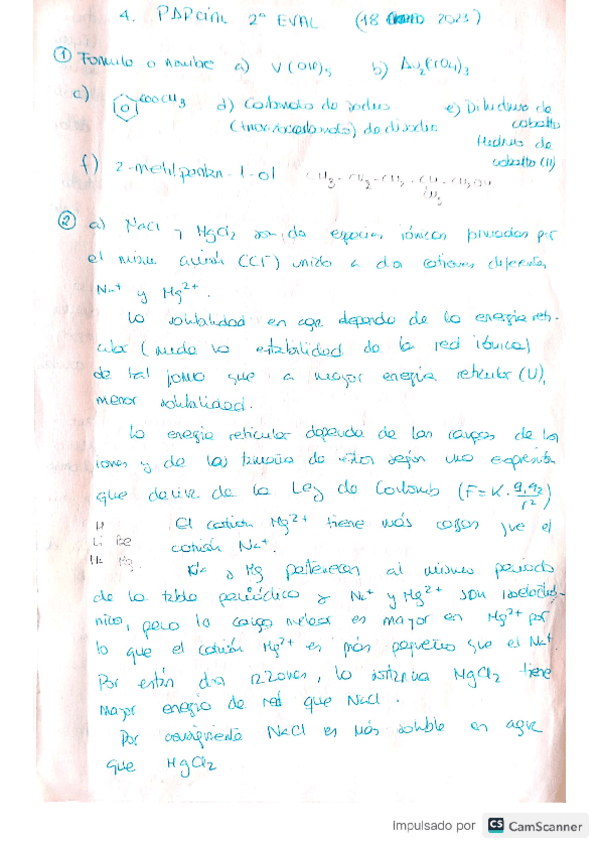 4. PARCIAL 2ª EVAL (18 2023)
① Formula o nombre a) V(OH)5 b) Au2(SO4)3
c) COOCH3 d) Carbonato de sodio e) Dihidruro de cobalto
de disodio Hidruro de cobalto (II)
f) 2-metilpentan-1-ol CH3-CH2-CH2-CH-CH2OH
CH3
② a) NaCl y MgCl2 son especies iónicas formadas por
el mismo anión (Cl-) unido a dos cationes diferentes,
Na+ y Mg2+.
La solubilidad en agua depende de la energía reti-
cular (mide la estabilidad de la red iónica)
de tal forma que a mayor energía reticular (U),
menor solubilidad.
La energía reticular depende de las cargas de los
iones y de los tamaño de estos según una expresión
que deriva de la Ley de Coulomb (F=K·q1·q2/r2)
H El catión Mg2+ tiene más carga que el
Li Be catión Na+.
Na Mg Na y Mg pertenecen al mismo periodo
de la tabla periódica y Na+ y Mg2+ son isoelectró-
nicos, pero la carga nuclear es mayor en Mg2+ por
lo que el catión Mg2+ es más pequeño que el Na+.
Por estas dos razones, la sustancia MgCl2 tiene
mayor energía de red que NaCl.
Por consiguiente NaCl es más soluble en agua
que MgCl2
Impulsado por CS CamScanner